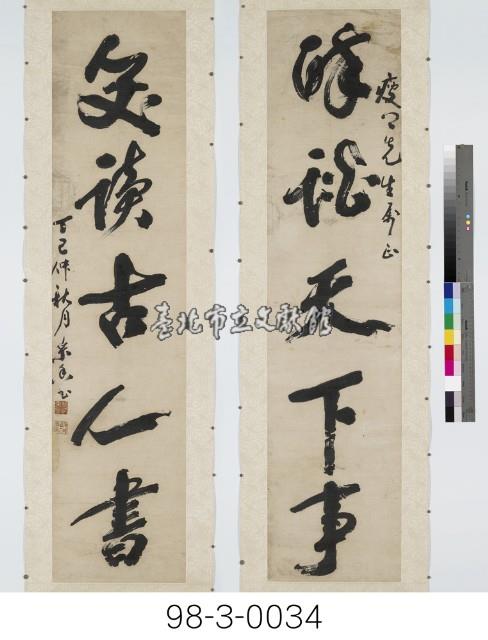 醉
天下事
先生屬正
笑讀古人書
丁巳仲秋月
臺北市立文獻館
98-3-0034